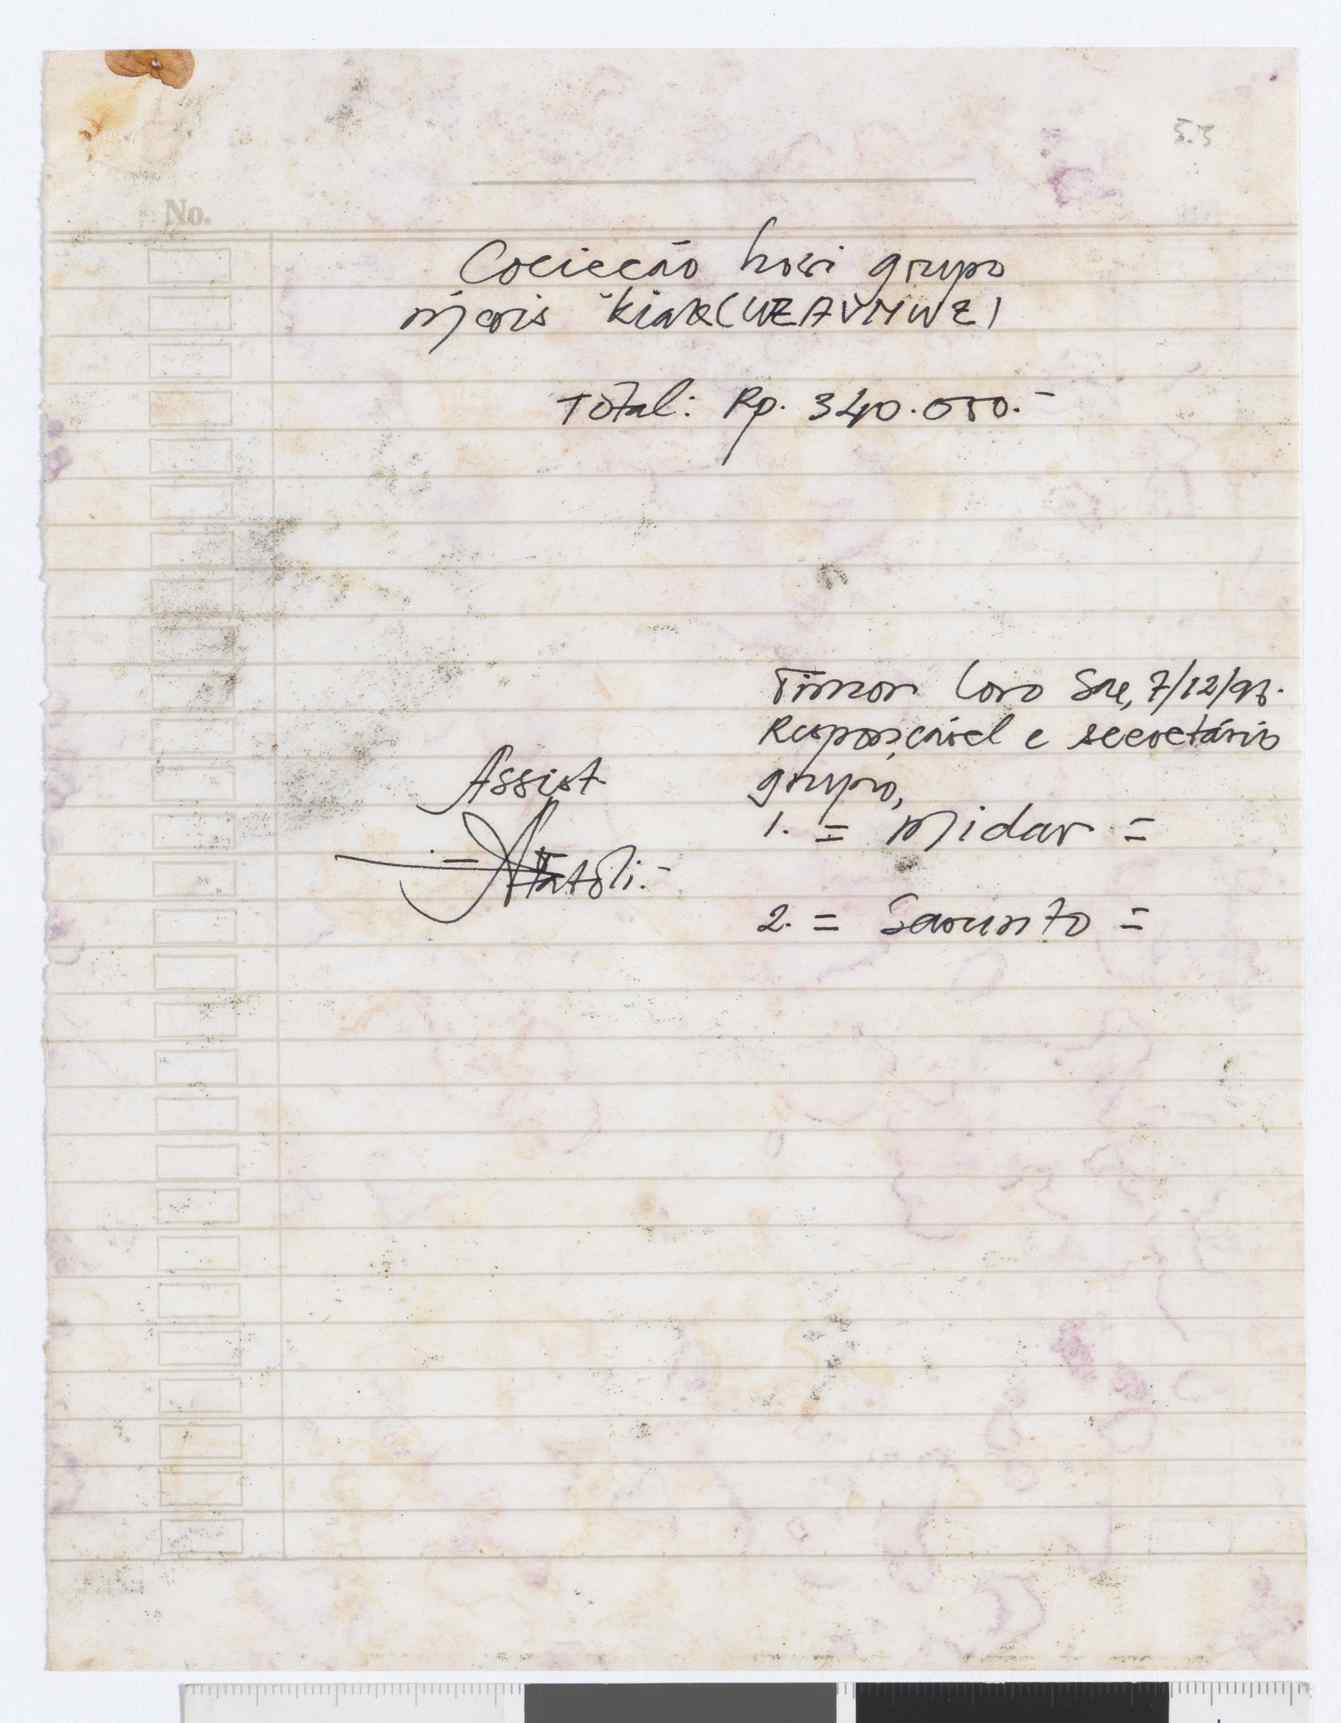 5.5
No.
Colecção hosi grupo
moris "kiak (WEAVMWE)
Total: Rp. 340.050.-
Timor Loro Sae, 7/12/98.
Responsável e secretário
grupo,
1. = Midar =
2. = Sarunto =
Assist